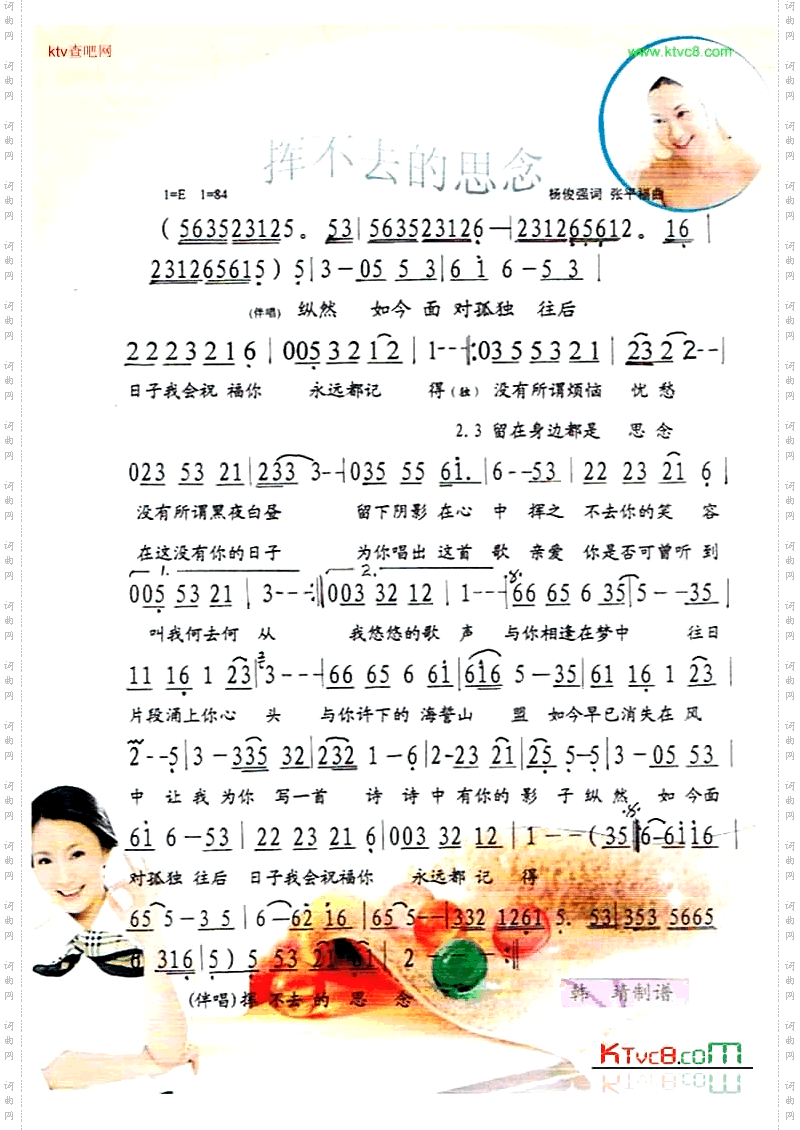 ktv查吧网
www.ktvc8.com
挥不去的思念
1=E 1=84
杨俊强词 张平福曲
(563523125。 53|563523126—|231265612。 16|
231265615)5|3-05 5 3|6 i 6-5 3|
(伴唱) 纵然 如今面对孤独 往后
2223216|0053212|1--|:0355321|2322--|
日子我会祝福你 永远都记 得(独) 没有所谓烦恼 忧愁
2.3 留在身边都是 思念
023 53 21|233 3--|035 55 6i.|6--53|22 23 21 6|
没有所谓黑夜白昼 留下阴影在心中 挥之 不去你的笑容
在这没有你的日子 为你唱出这首歌 亲爱 你是否可曾听到
1. 2.
005 53 21|3---:||003 32 12|1---|66 65 6 35|5--35|
叫我何去何从 我悠悠的歌声 与你相逢在梦中 往日
11 16 1 23|3---|66 65 6 6i|6i6 5-35|61 16 1 23|
片段涌上你心头 与你许下的海誓山盟 如今早已消失在风
2--5|3-335 32|232 1-6|2-23 21|25 5-5|3-05 53|
中 让我为你 写一首 诗 诗中有你的影子 纵然 如今面
6i 6-53|22 23 21 6|003 32 12|1--(35|6-6i i6|
对孤独 往后 日子我会祝福你 永远都记 得
65 5-3 5|6-62 i6|65 5--|332 1261 5. 53|353 5665
6 316|5)5 53 21 61|2---:||
(伴唱)挥不去的思念
韩 靖制谱
KTvc8.com
词曲网